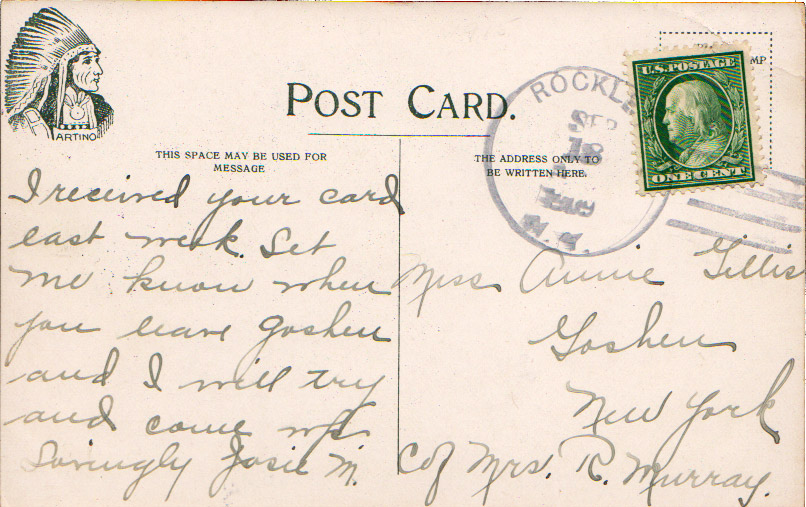 ARTINO
POST CARD.
THIS SPACE MAY BE USED FOR
MESSAGE
THE ADDRESS ONLY TO
BE WRITTEN HERE.
ROCKL
SEP
18
U.S. POSTAGE
ONE CENT
MP
I received your card
last week. Let
me know when
you leave Goshen
and I will try
and come up
Lovingly Josie M.
Miss Annie Gillis
Goshen
New York
c/o Mrs. R. Murray.